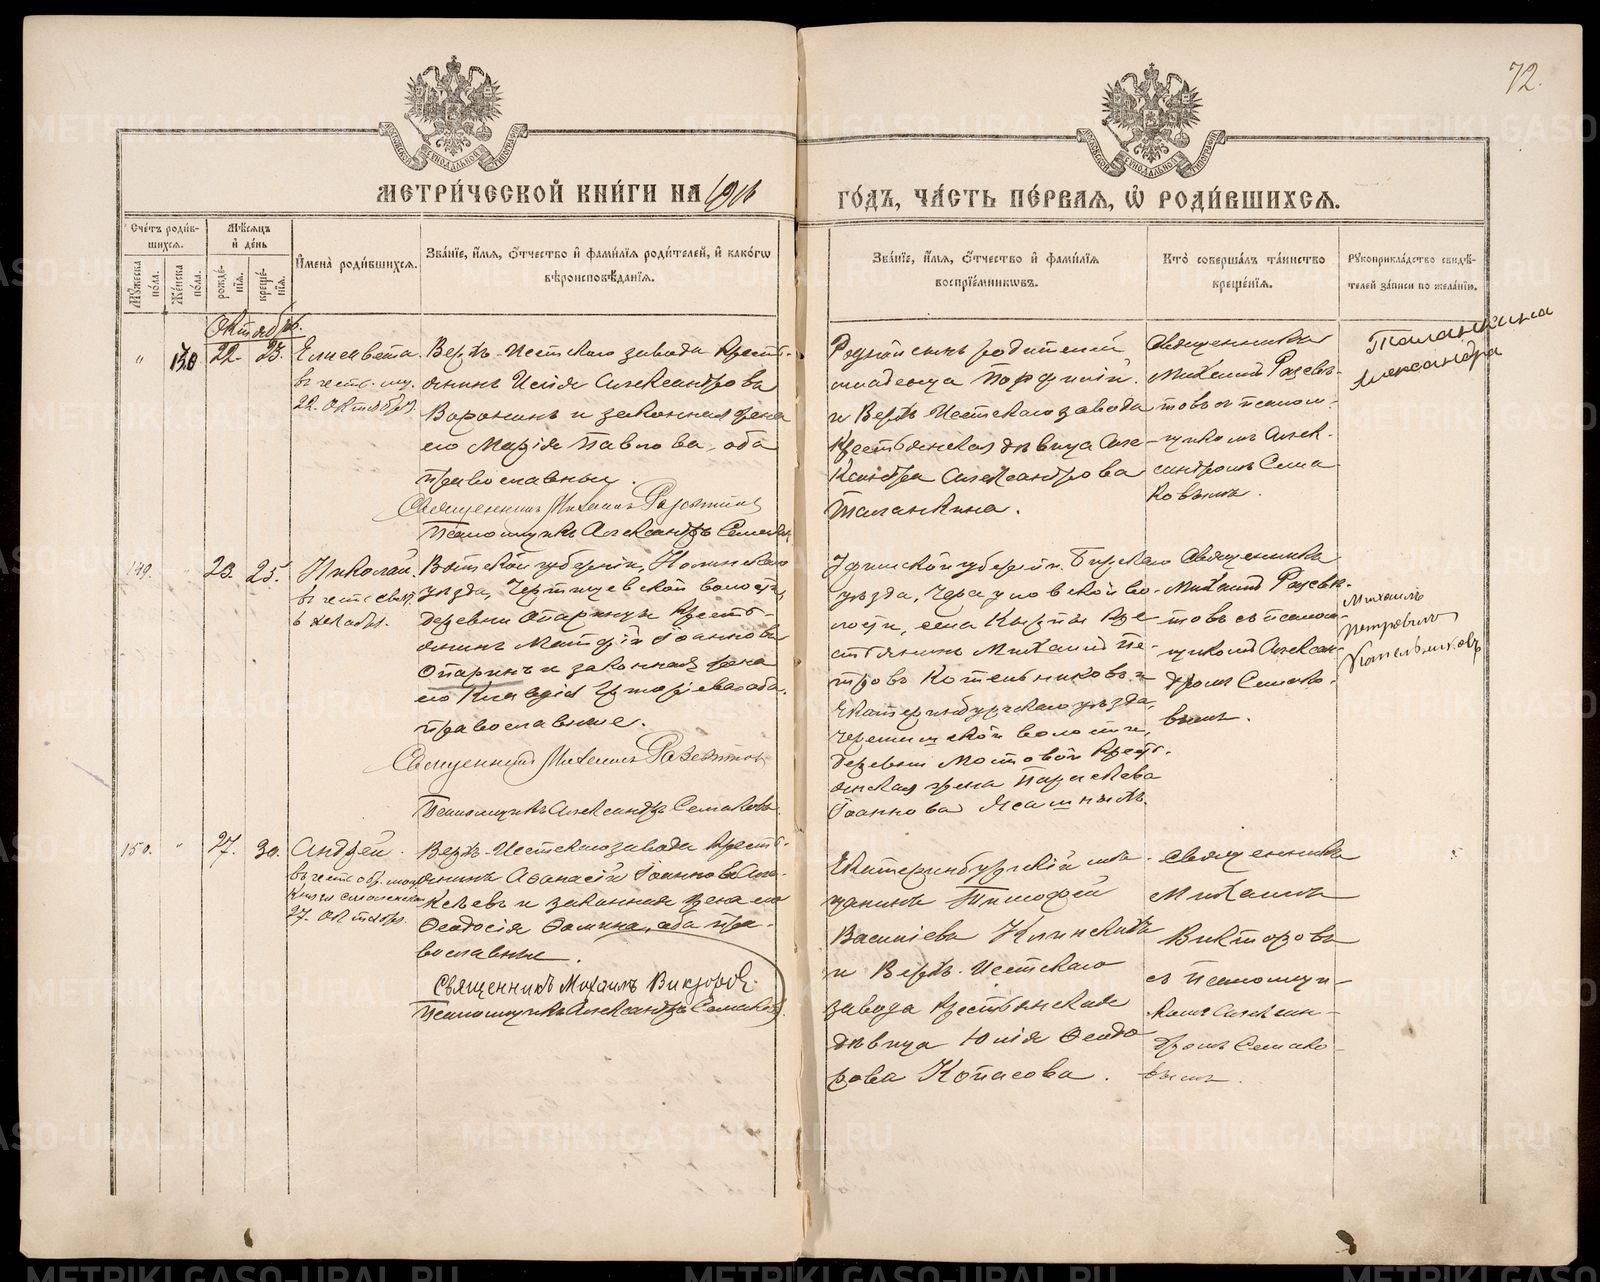 72.
МЕТРИ́ЧЕСКОЙ КНИ́ГИ НА 1916
ГО́ДЪ, ЧА́СТЬ ПЕ́РВАЯ, Ѽ РОДИ́ВШИХСЯ.
Сче́тъ роди́в-
шихся.
Мꙋ́жеска по́ла.
Же́нска по́ла.
Мѣ́сяцъ и҆ де́нь
рожде́-
нїя.
креще́-
нїя.
И҆мена̀ роди́вшихся.
Зва́нїе, и҆́мя, ѻ҆́тчество и҆ фами́лїя роди́телей, и҆ како́гѡ
вѣроисповѣ́данїя.
Зва́нїе, и҆́мя, ѻ҆́тчество и҆ фами́лїя
воспрїе́мникѡвъ.
Кто̀ соверша́лъ та́инство
креще́нїя.
Рꙋкоприкла́дство свидѣ́-
телей за́писи по жела́нїю.
Октябрь.
" 130 22. 23. Елисавета
въ чест. му.
22. Октября
Верхъ-Исетскаго завода крестъ-
янинъ Илія Александровъ
Воронинъ и законная жена
его Марія Павлова, оба
православны.
Священникъ Михаилъ
Псаломщикъ Александръ Семаковъ
Родной сынъ родителей
младенца Порфирій
и Верхъ-Исетскаго завода
крестьянская дѣвица Але-
ксандра Александрова
Таланкина.
Священникъ
Михаилъ
товъ съ псалом-
щикомъ Алек-
сандромъ Сема
ковымъ.
Таланкина
Александра
149. " 23. 25. Николай.
Вятской губерніи, Нолинскаго
уѣзда, волости,
деревни крестъ-
янинъ Матфій Іоанновъ
Опаринъ и законная жена
его Клавдія Григорьева, оба
православные.
Священникъ Михаилъ
Псаломщикъ Александръ Семаковъ
Уфимской губерніи, Бирскаго
уѣзда, во-
лости, села кре-
стьянинъ Михаилъ Пе-
тровъ Котельниковъ и
Екатеринбургскаго уѣзда,
волости,
деревни Мостовой крестъ-
янская жена Параскева
Іоаннова Ясашныхъ.
Священникъ
Михаилъ
товъ съ псалом-
щикомъ Алексан-
дромъ Семако-
вымъ.
Михаилъ
Петровичъ
Котельниковъ
150. " 27. 30. Андрей.
въ чест.
князя смоленскаго
27. Октября.
Верхъ-Исетскаго завода крестъ-
янинъ Аѳанасій Іоанновъ Але-
ксѣевъ и законная жена его
Ѳеодосія Ѳомина, оба пра-
вославные.
Священникъ Михаилъ Викторовъ.
Псаломщикъ Александръ Семаковъ.
Екатеринбургскій мѣ-
щанинъ Тимофей
Васильевъ
и Верхъ-Исетскаго
завода крестьянская
дѣвица Юлія Ѳеодо
рова Копасова.
Священникъ
Михаилъ
Викторовъ
съ псаломщи-
комъ Алексан-
дромъ Семако-
вымъ.